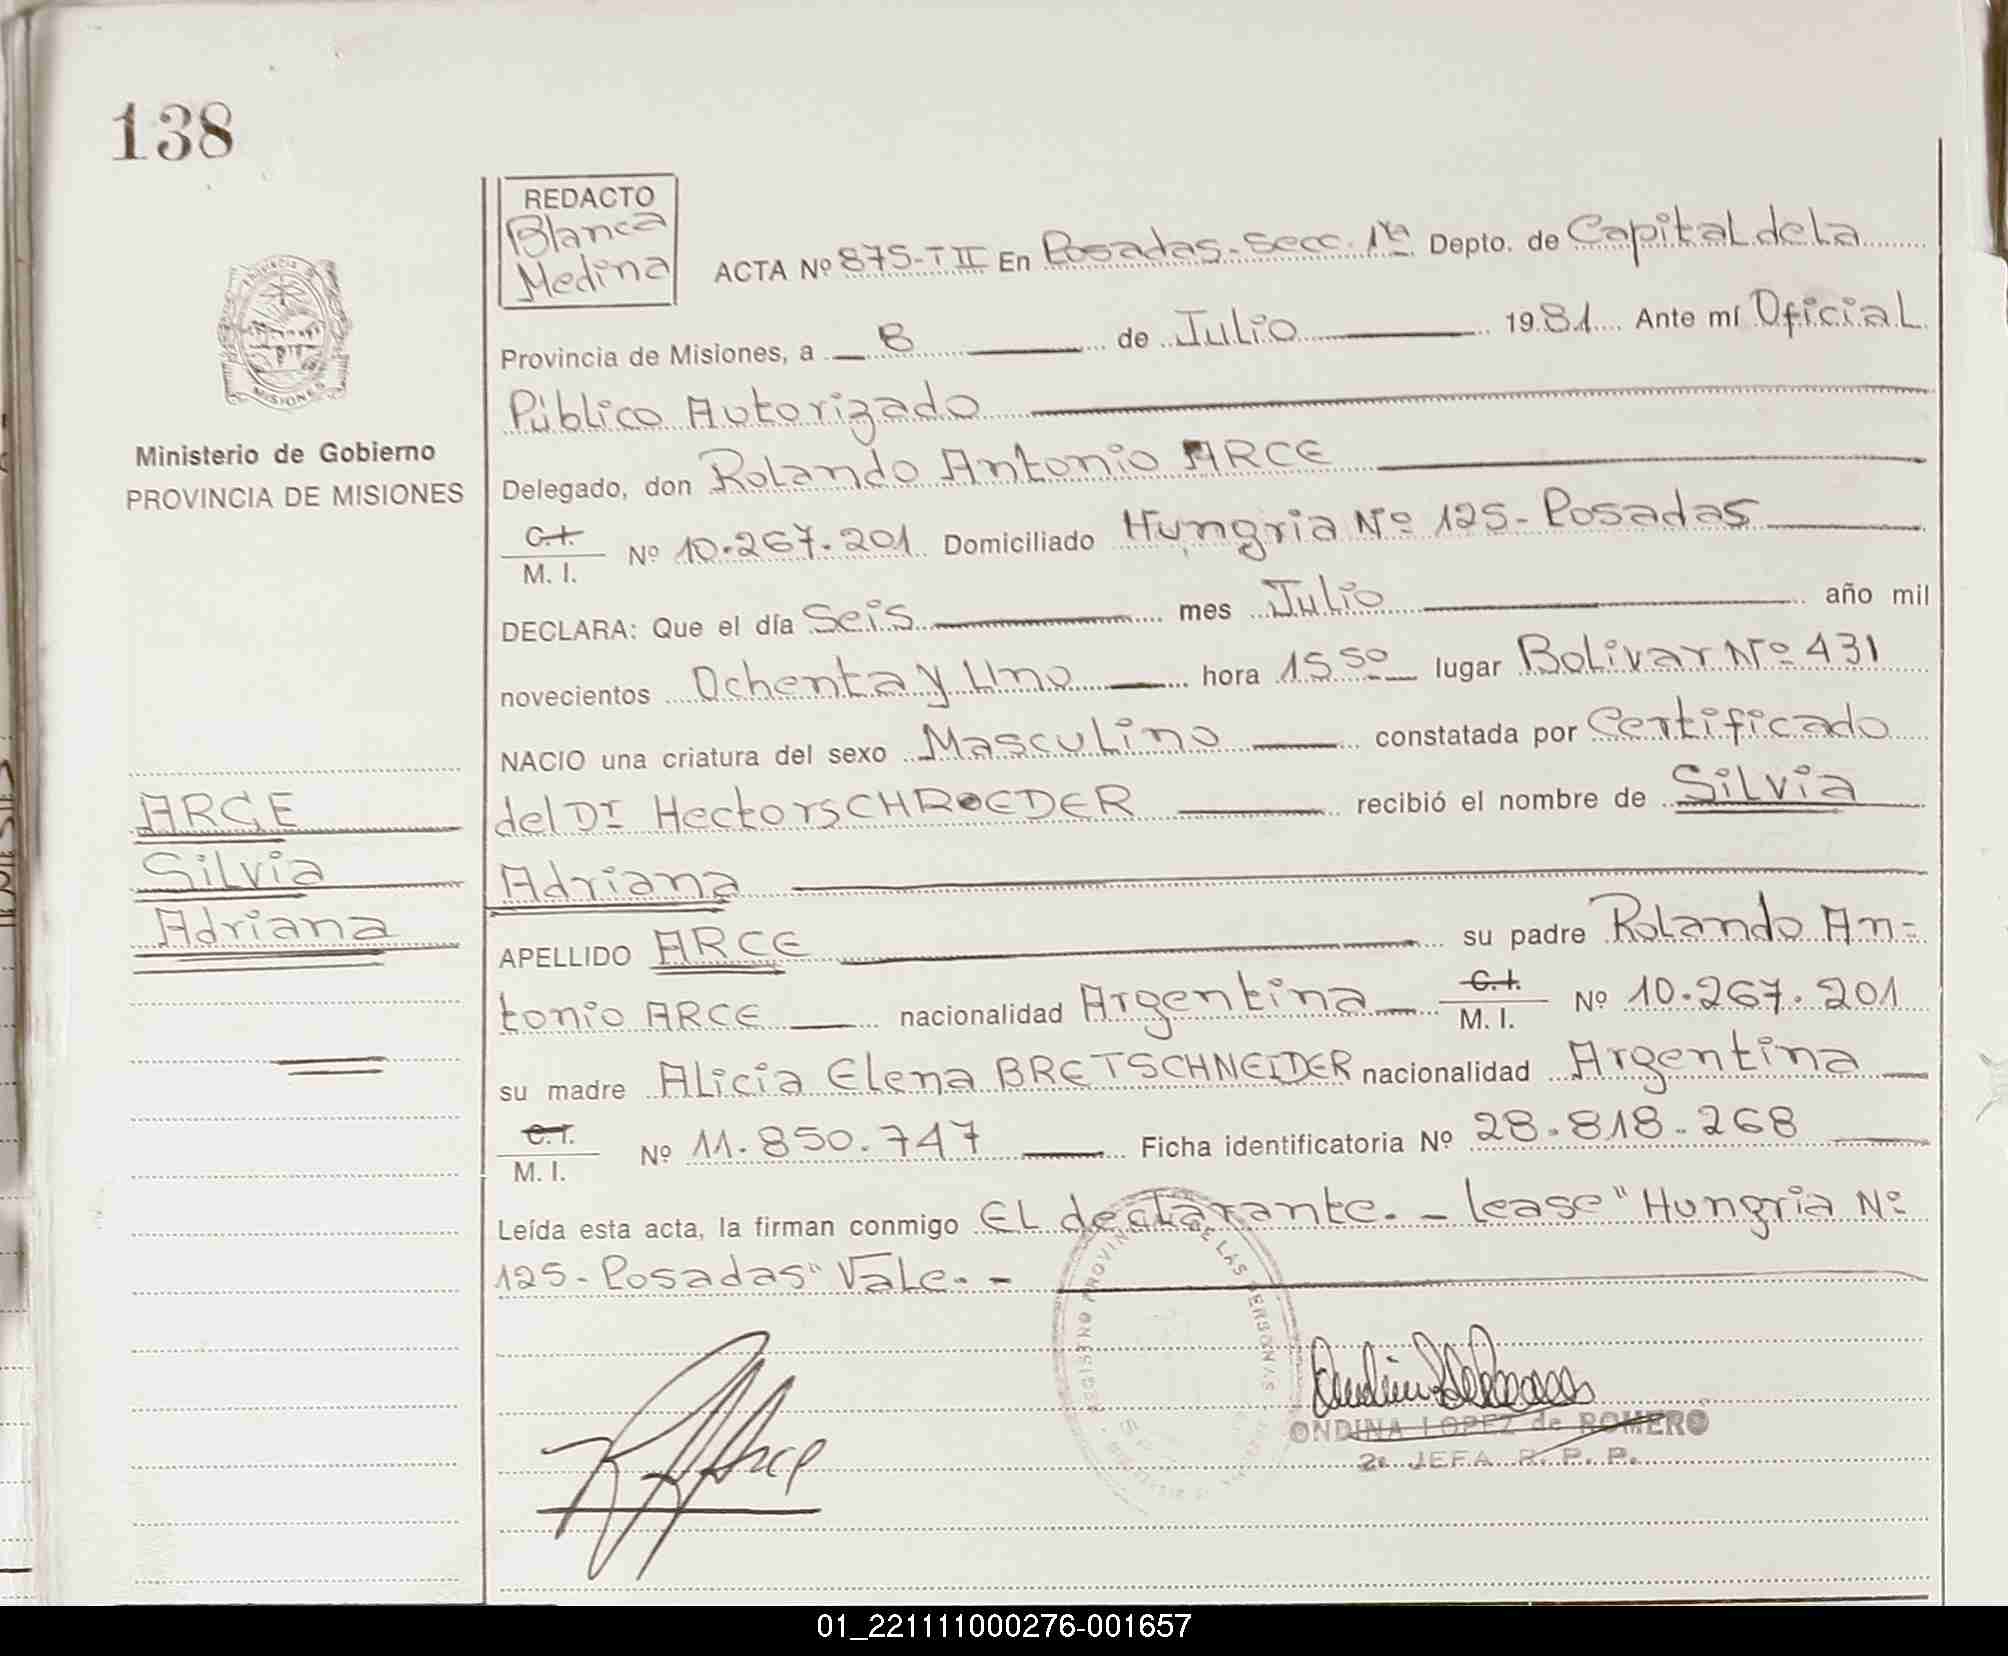 138
REDACTO
Blanca
Medina
ACTA Nº 875-TII En Posadas-Secc. 1ra Depto. de Capital de la
Provincia de Misiones, a 8 de Julio 1981 Ante mí Oficial
Público Autorizado
Ministerio de Gobierno
PROVINCIA DE MISIONES
Delegado, don Rolando Antonio ARCE
C.I.
M. I. Nº 10.267.201 Domiciliado Hungria Nº 125- Posadas
DECLARA: Que el día Seis mes Julio año mil
novecientos Ochenta y Uno hora 15 50 lugar Bolivar Nº 431
NACIO una criatura del sexo Masculino constatada por Certificado
del Dr Hector SCHROEDER recibió el nombre de Silvia
Adriana
ARCE
Silvia
Adriana
APELLIDO ARCE su padre Rolando An=
tonio ARCE nacionalidad Argentina C.I.
M. I. Nº 10.267.201
su madre Alicia Elena BRETSCHNEIDER nacionalidad Argentina
C.I.
M. I. Nº 11.850.747 Ficha identificatoria Nº 28.818.268
Leída esta acta, la firman conmigo El declarante. - lease "Hungria Nº
125- Posadas" Vale. -
REGISTRO PROVIN DE LAS PERSONAS
R Arce
ONDINA LOPEZ de ROMERO
2a JEFA R. P. P.
01_221111000276-001657